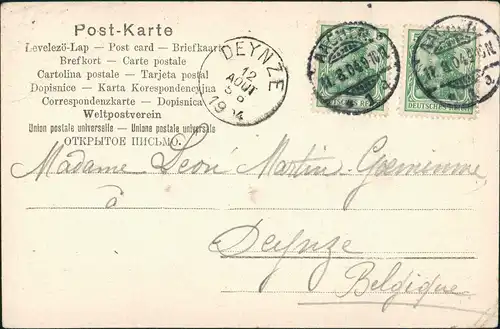 Post-Karte
Levelező-Lap — Post card — Briefkaart
Brefkort — Carte postale
Cartolina postale — Tarjeta postal
Dopisnice — Karta Korespondencyjna
Correspondenzkarte — Dopisnica
Weltpostverein
Union postale universelle — Unione postale universale
ОТКРЫТОЕ ПИСЬМО.
DEYNZE
12
AOUT
1904
AACHEN
11.8.04
a
DEUTSCHES REICH
AACHEN
8.04
a
DEUTSCHES REICH
Madame Léon Martin
à
Deynze
Belgique